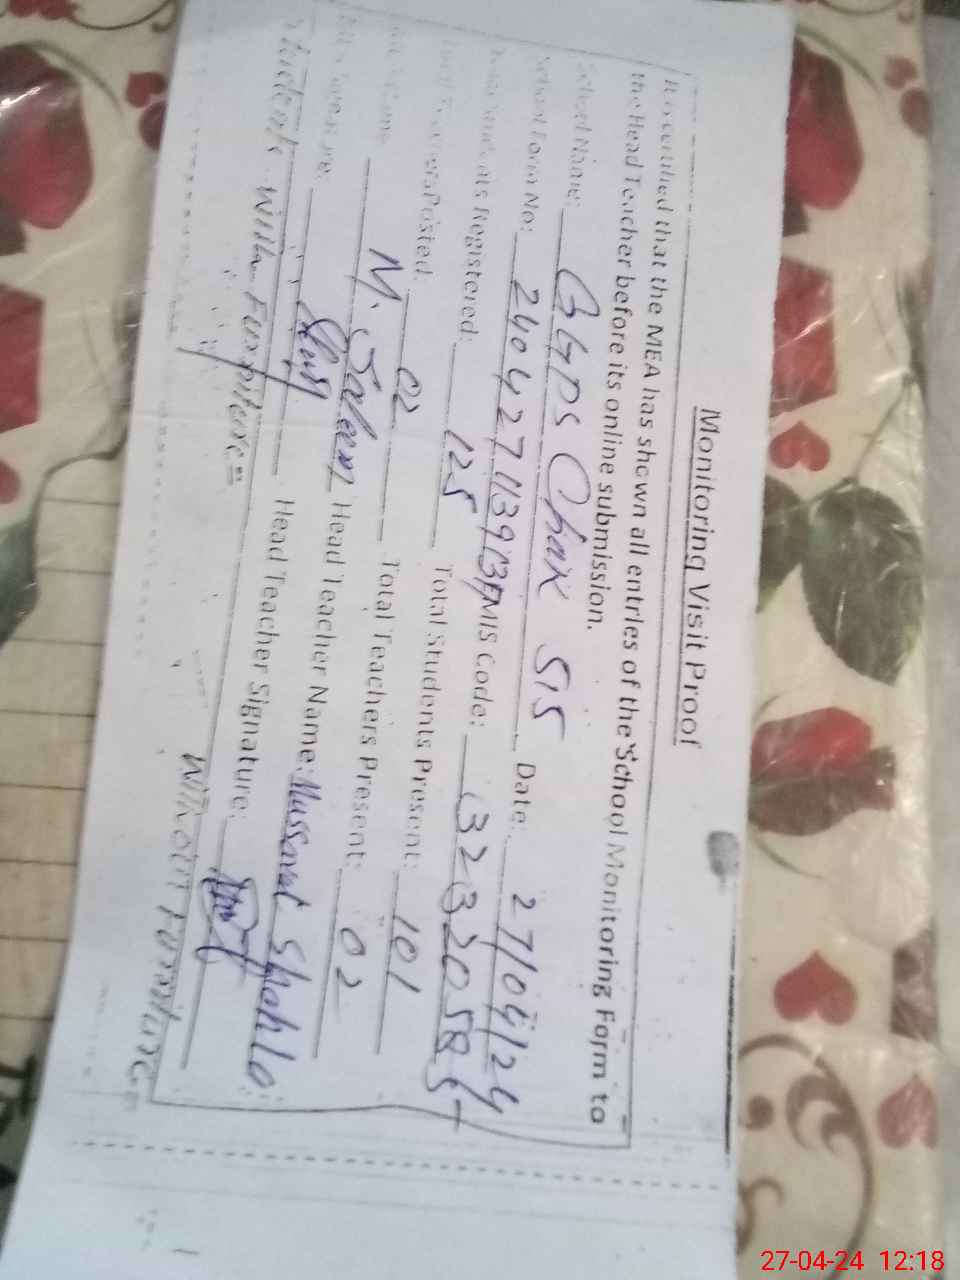 Monitoring Visit Proof
It is certified that the MEA has shown all entries of the School Monitoring Form to
the Head Teacher before its online submission.
School Name: GGPS Chak 515 Date: 27/04/24
School Form No: 2404271139 EMIS Code: 32320585
Total Students Registered: 125 Total Students Present: 101
Total Teachers Posted: 02 Total Teachers Present: 02
MEA Name: M. Saleem Head Teacher Name: Mussarat Shahla
MEA Signature: Head Teacher Signature:
Students With Furniture= Without Furniture=
27-04-24 12:18